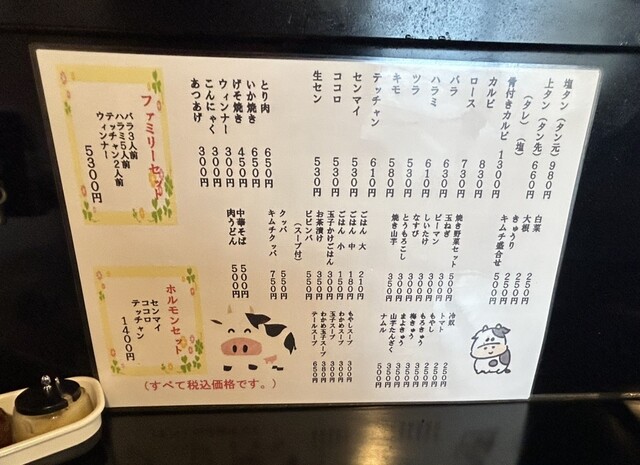 塩タン（タン元）980円
上タン（タン先）660円
（タレ）（塩）
骨付きカルビ 1300円
カルビ 830円
ロース 730円
バラ 630円
ハラミ 610円
ツラ 580円
キモ 530円
テッチャン 610円
センマイ 530円
ココロ 530円
生セン 530円
とり肉 650円
いか焼き 650円
げそ焼き 450円
ウィンナー 300円
こんにゃく 300円
あつあげ 300円
ファミリーセット
バラ3人前
ハラミ5人前
テッチャン2人前
ウィンナー
5300円
白菜 250円
大根 250円
きゅうり 250円
キムチ盛合せ 500円
焼き野菜セット 500円
玉ねぎ 300円
ピーマン 300円
しいたけ 300円
なすび 300円
とうもろこし 300円
焼き山芋 350円
ごはん 大 210円
ごはん 中 180円
ごはん 小 150円
玉子かけごはん 300円
お茶漬け 350円
ビビンバ 550円
（スープ付）
クッパ 550円
キムチクッパ 750円
中華そば 500円
肉うどん 500円
冷奴 250円
トマト 250円
もやし 250円
もろきゅう 350円
梅きゅう 350円
まよきゅう 350円
山芋たんざく 300円
ナムル 500円
もやしスープ 300円
わかめスープ 300円
玉子スープ 300円
わかめ玉子スープ 380円
テールスープ 650円
ホルモンセット
センマイ
ココロ
テッチャン
1400円
（すべて税込価格です。）